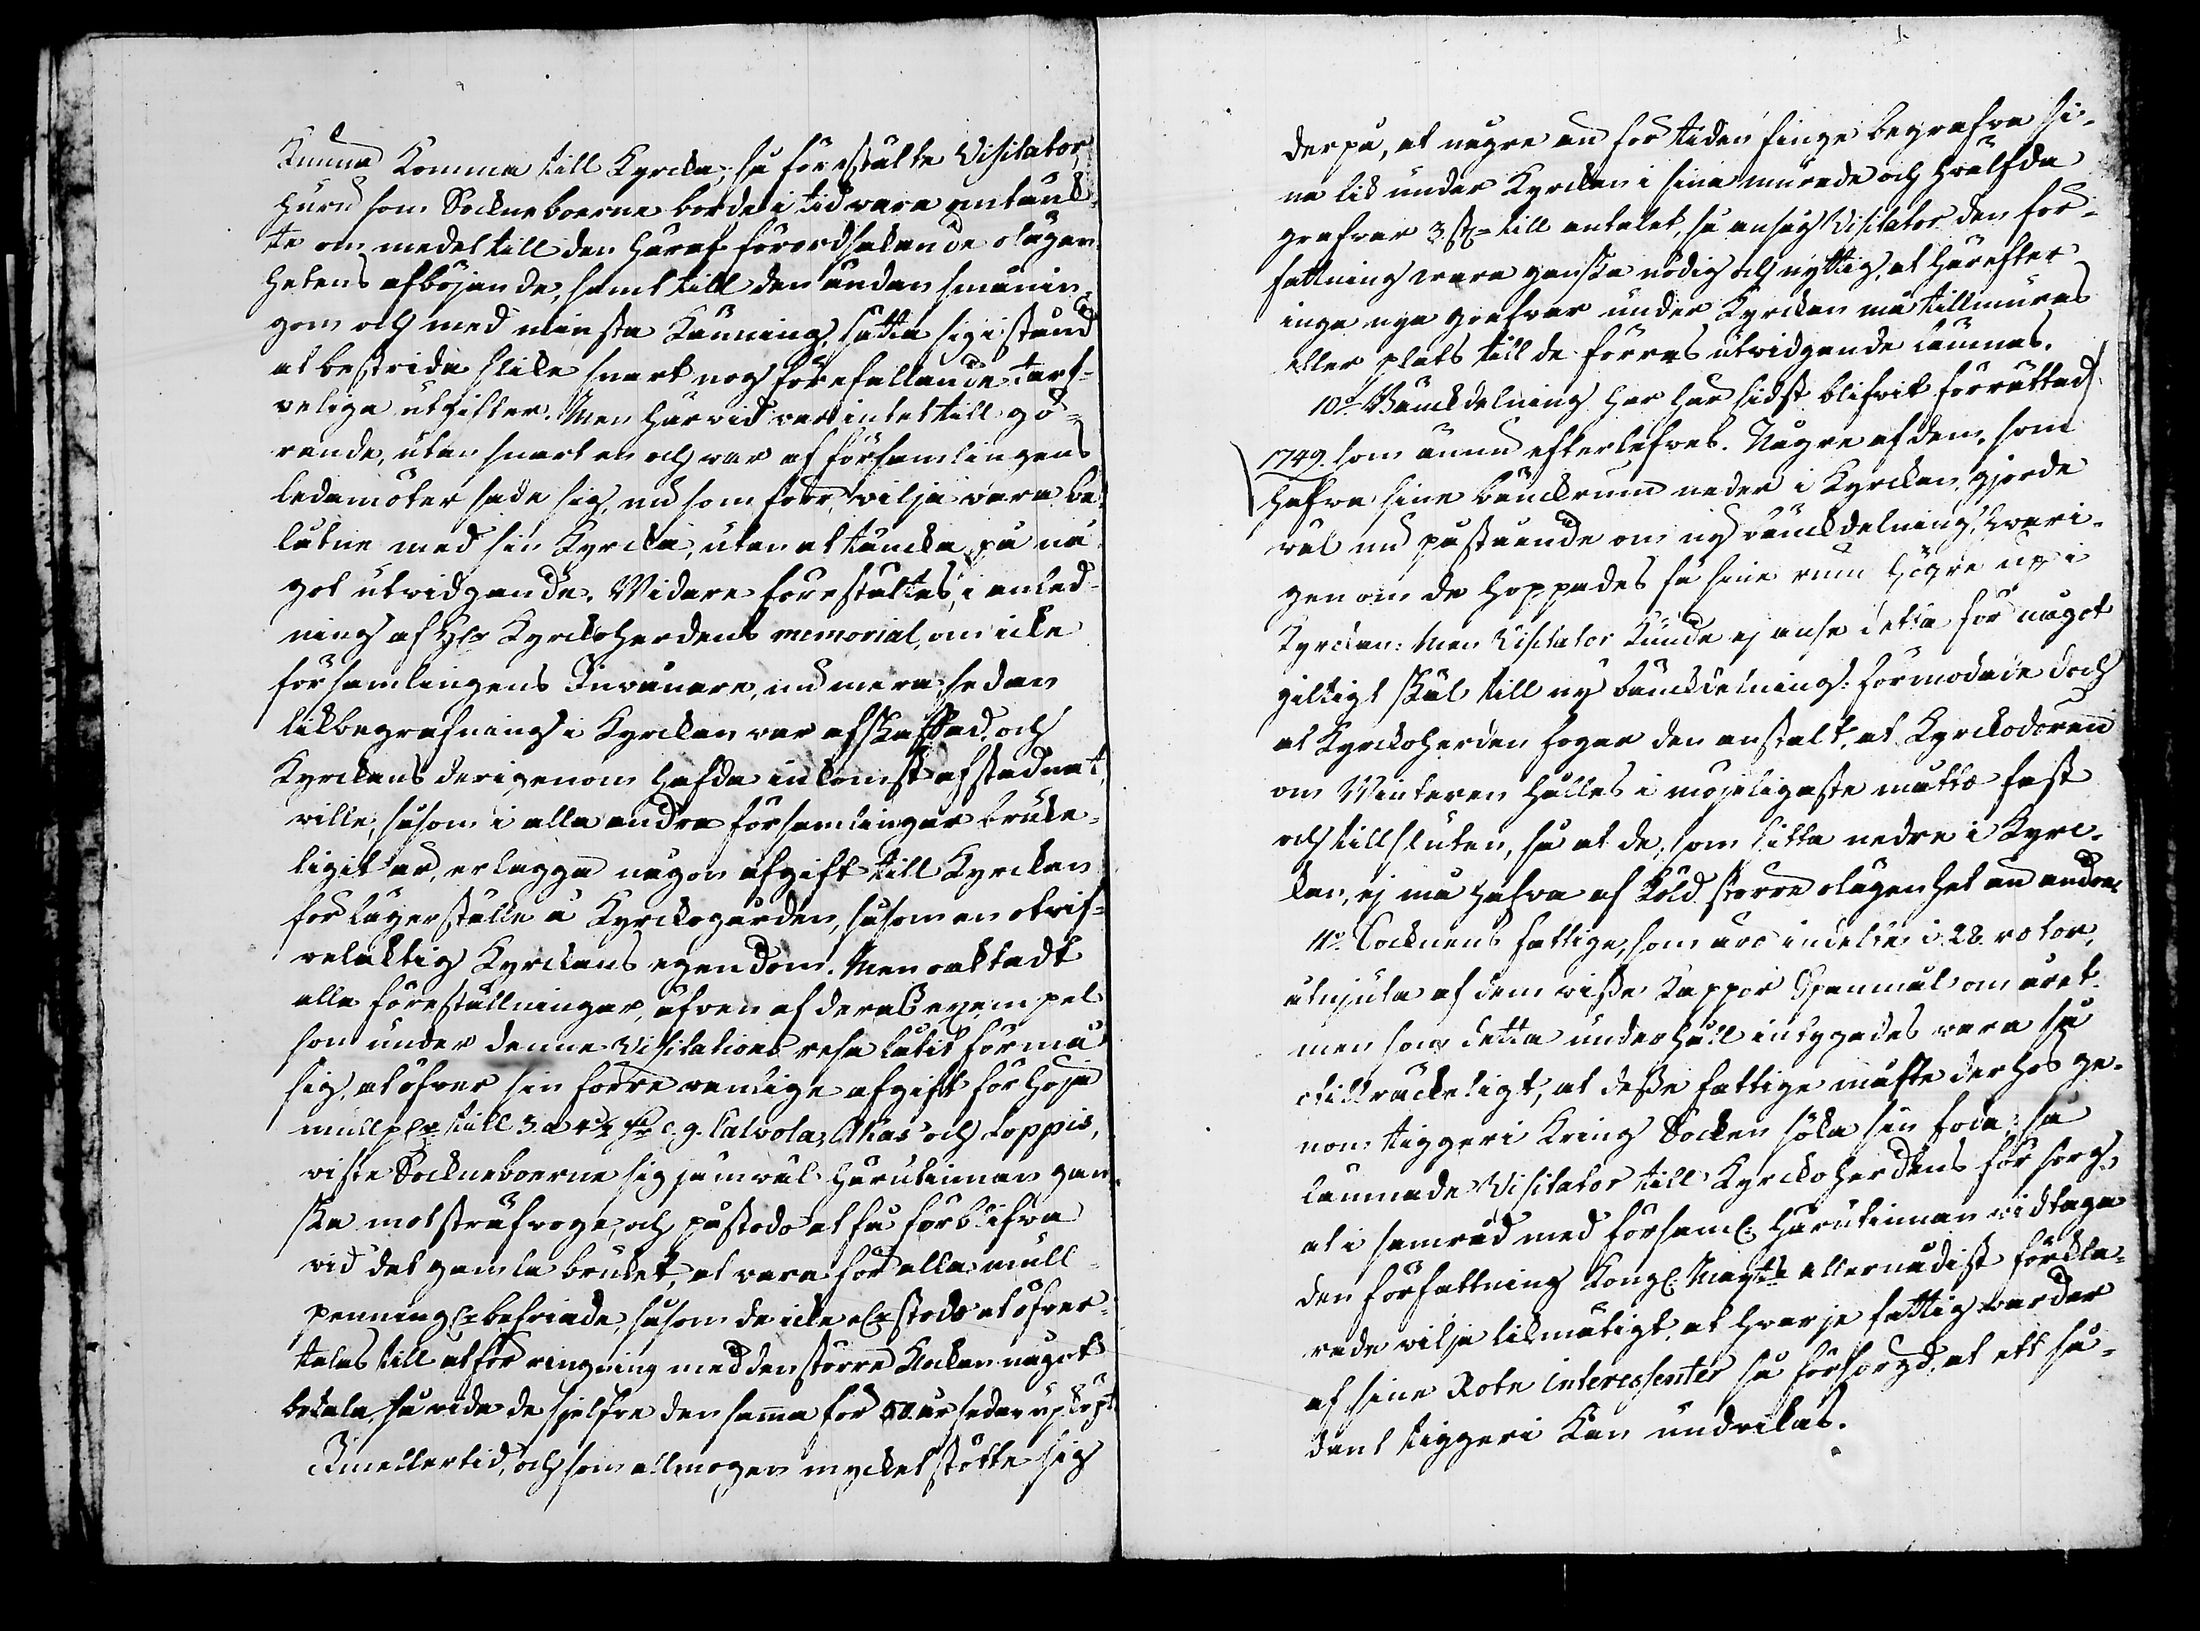 kunna komma till Kyrcka; så förestälte Visitator
huru som Sockneboerne borde i tid vara omtänck-
te om medel till den häraf förordsakande olägen-
hetens afböjande, samt till den ändan smånin-
gom och med minsta känning, sätta sig i stånd
at bestrida slike snart nog förefallande tarf-
veliga utgifter. Men härvid var intet till gö-
rande, utan snart en och var af församlingens
ledamöter sade sig, nu som förr, vilja vara be-
låtne med sin Kyrcka, utan at täncka på nå-
got utvidgande. Vidare förestältes, i anled-
ning af Hr Kyrckoherdens memorial, om icke
församlingens Invånare, nu mera, sedan
likbegrafning i Kyrckan var afskaffad, och
Kyrckans derigenom hafda inkomst afstadnat,
ville, såsom i alla andra församlingar bruke-
ligit är, erlägga någon afgift till Kyrckan
för lägerställe å Kyrckogården, såsom en otvif-
velaktig Kyrckans egendom. Men oaktadt
alla föreställningar, äfven af deras exempel
som under denne Visitations resa låtit förmå
sig, at öfver sin förre vanlige afgift förhöja
mullpgr till 3. a 4 1/2 e. g. Calvola, Akas och Loppis,
viste Sockneboerne sig jämväl härutinnan gan-
ska motsträfvoge, och påstodo at få förblifva
vid det gamla bruket, at vara för alla mull-
penningr befriade, såsom de icke eller stodo at öfver-
talas till at för ringning med den större klockan något
betala, så vida de sjelfve den samma för 50. år sedan upköpt.
Imellertid, och som allmogen myckel stötte sig
derpå, at någre än för tiden finge begrafva si-
na lik under Kyrckan i sina murade och hvälfda
grafvar 3. st. till antalet, så ansåg Visitator den för-
fattning vara ganska nödig och nyttig, at härefter
inga nya grafvar under Kyrckan må tillmuras
eller plats till de förras utvidgande lämnas.
10o Bänckdelning har här sidst blifvit förrättad
1749. som ännu efterlefves. Någre af dem, som
hafva sine bänckrum neder i Kyrckan, gjorde
väl nu påstående om ny bänckdelning, hvari-
genom de hoppades få sine rum högre up i
Kyrckan: Men Visitator kunde ej anse detta för något
giltigt skäl till ny bänckdelning: förmodade doch
at Kyrckoherden fogar den anstalt, at Kyrckodören
om Winteren hålles i möjeligaste måtto fast
och tillsluten, så at de, som sitta nedre i Kyrc-
kan, ej må hafva af köld större olägenhet än andre
11o. Socknens fattige, som äro indelte i 28. rotor,
åtnjuta af dem visse kappor Spanmål om året
men som detta underhåll intygades vara så
otillräckeligt, at desse fattige måste derhos ge-
nom tiggeri kring Socken söka sin föda; så
lämnade Visitator till Kyrckoherdens försorg,
at i samråd med Församl: härutinnan vidtaga
den författning Kongl: Mayts allernådist förkla-
rade vilja likmätigt, at hvarje fattig varder
af sine Rote interessenter så försörgd, at ett så-
dant tiggeri kan undvikas.